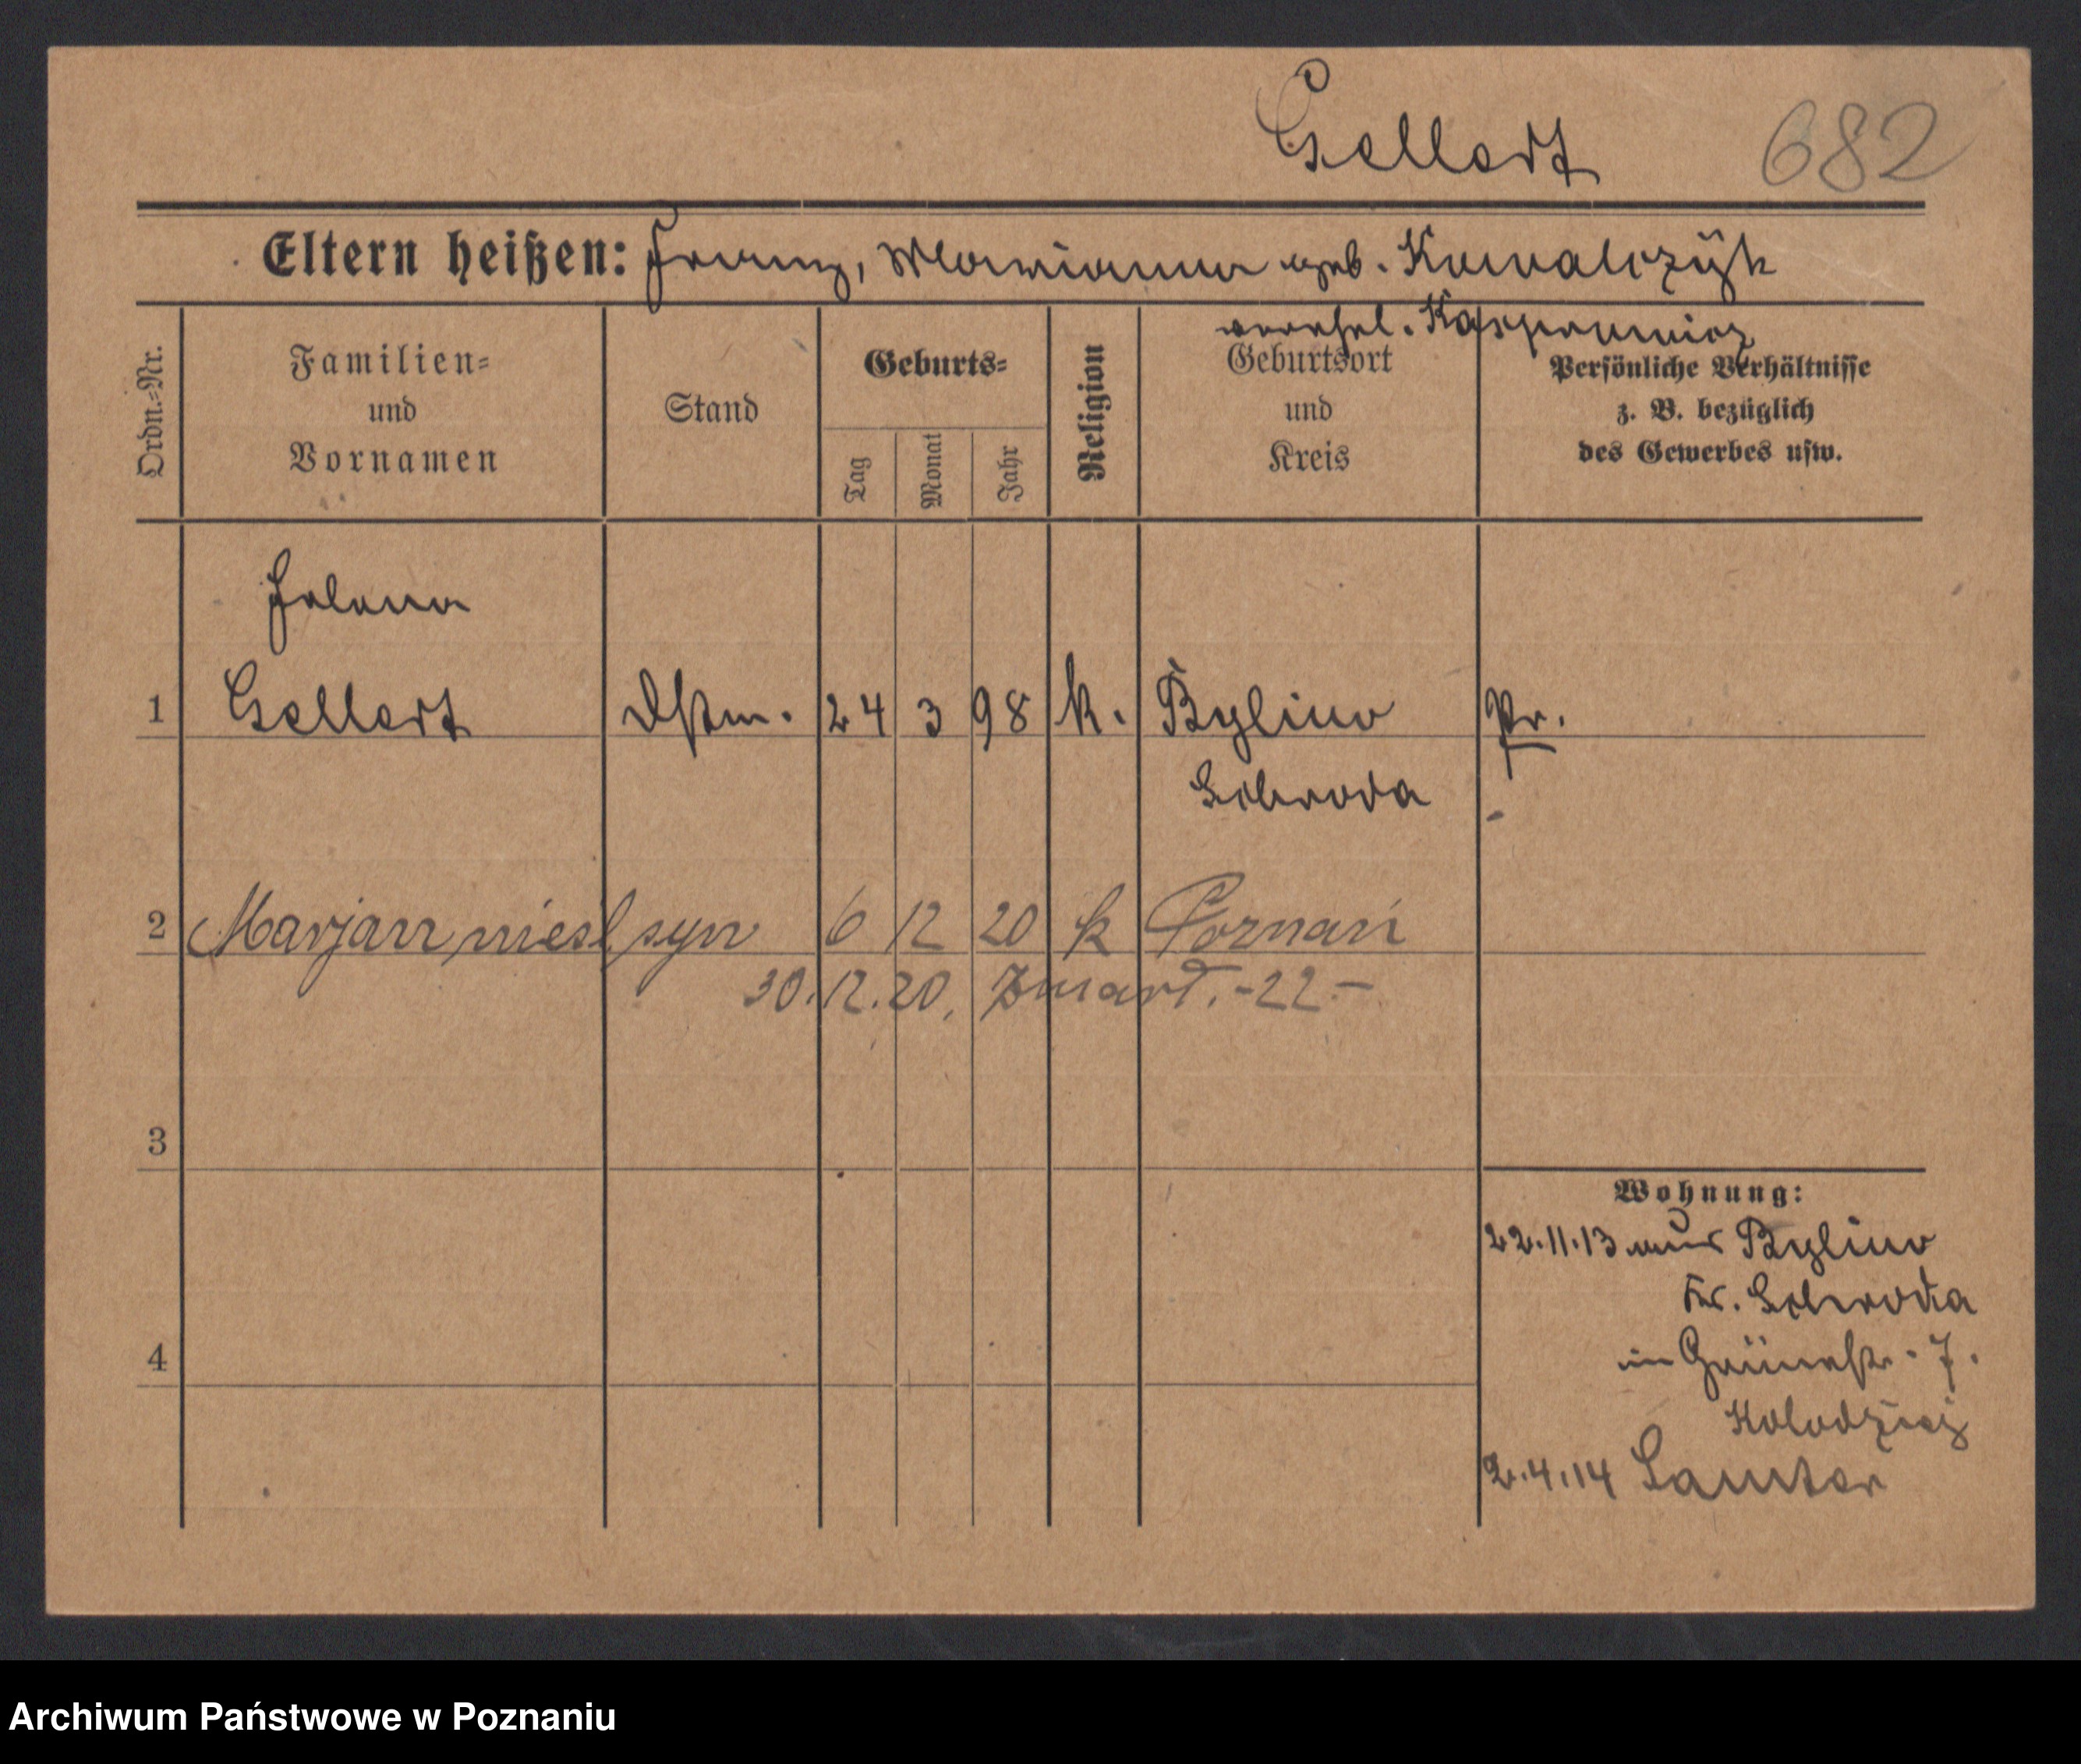 Gellert 682
Eltern heißen: Franz, Marianna geb. Kowalczyk
verehel. Kasprowicz
Ordn.-Nr.
Familien- und Vornamen
Stand
Geburts-
Tag
Monat
Jahr
Religion
Geburtsort und Kreis
Persönliche Verhältnisse z. B. bezüglich des Gewerbes usw.
Helena
1 Gellert Dstm. 24 3 98 k. Bylino Pr.
Schroda
2 Marjan nieśl syn 6 12 20 k Poznań
30.12.20. Zmarł. -22-
3
4
Wohnung:
22.11.13 aus Bylino
Kr. Schroda
in Grünestr. 7.
Kolodziej
2.4.14 Samter
Archiwum Państwowe w Poznaniu